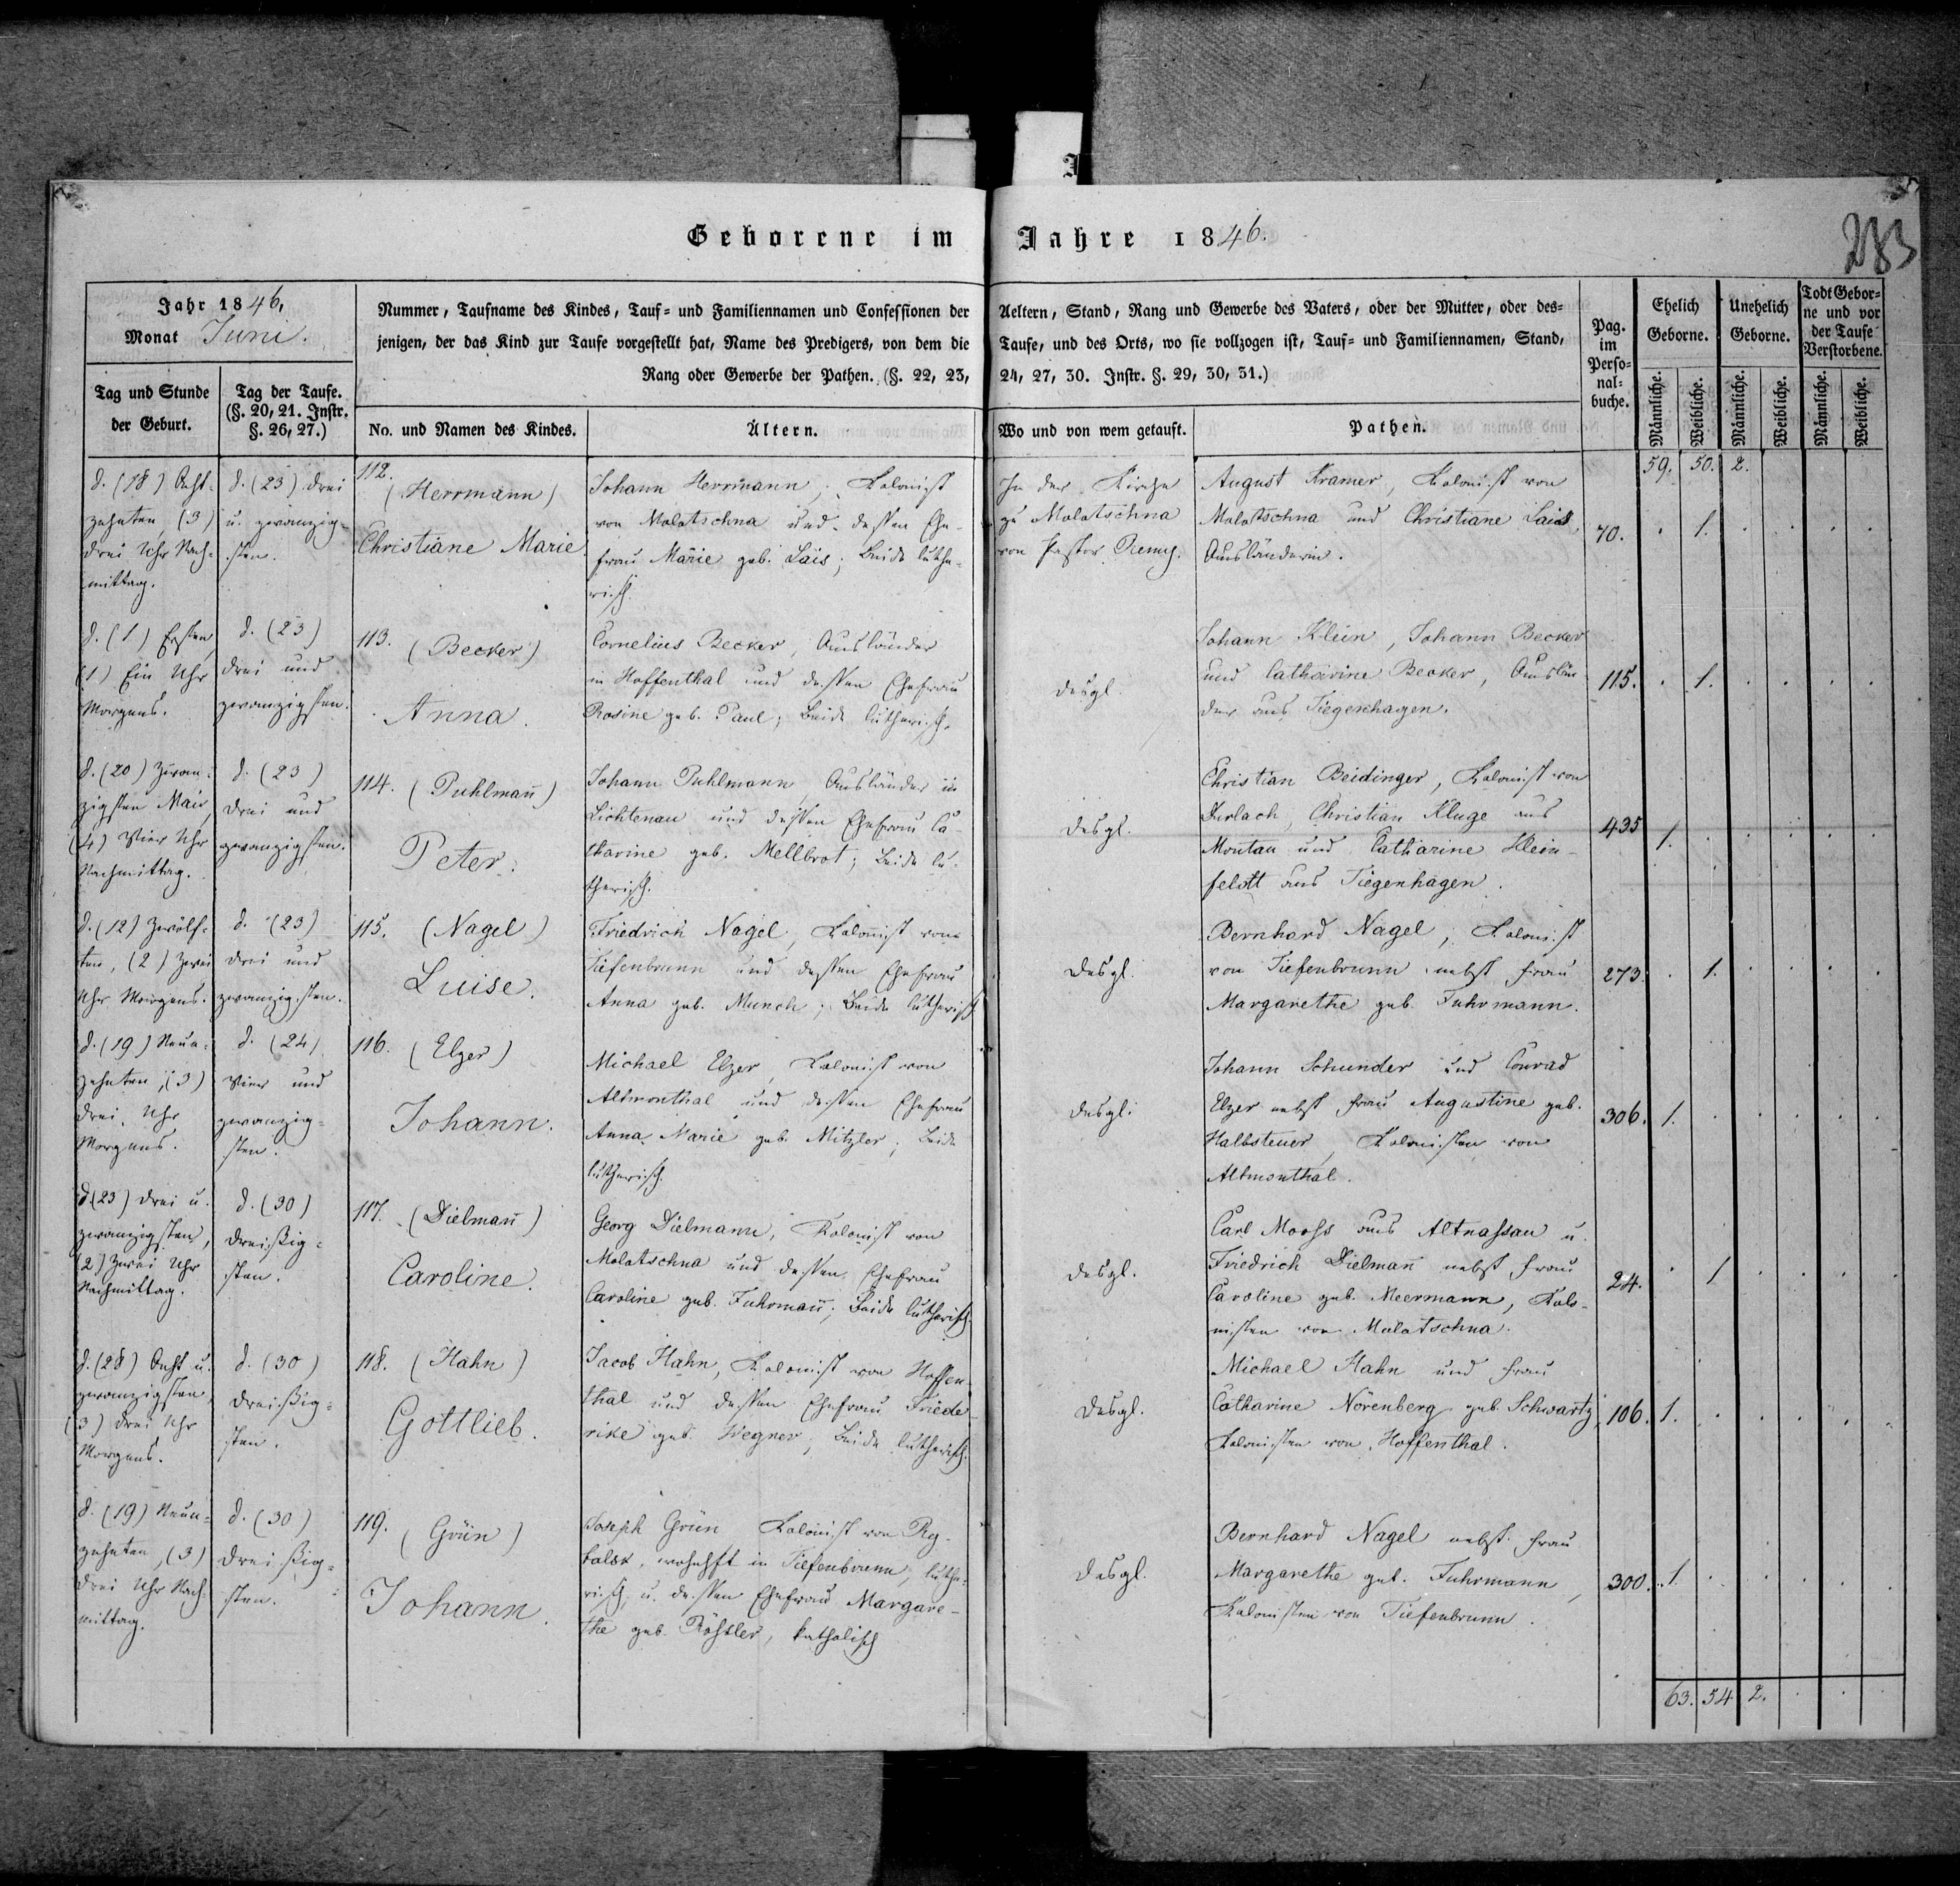 Geborene im Jahre 1846.
283
Jahr 1846,
Monat Juni.
Tag und Stunde
der Geburt.
Tag der Taufe.
(§. 20, 21. Instr.
§. 26, 27.)
Nummer, Taufname des Kindes, Tauf- und Familiennamen und Confessionen der Aeltern, Stand, Rang und Gewerbe des Vaters, oder der Mutter, oder des-
jenigen, der das Kind zur Taufe vorgestellt hat, Name des Predigers, von dem die Taufe, und des Orts, wo sie vollzogen ist, Tauf- und Familiennamen, Stand,
Rang oder Gewerbe der Pathen. (§. 22, 23, 24, 27, 30. Instr. §. 29, 30, 31.)
No. und Namen des Kindes.
Ältern.
Wo und von wem getauft.
Pathen.
Pag.
im
Perso-
nal-
buche.
Ehelich
Geborne.
Unehelich
Geborne.
Todt Gebor-
ne und vor
der Taufe
Verstorbene.
Männliche.
Weibliche.
Männliche.
Weibliche.
Männliche.
Weibliche.
59. 50. 2.
d. (18) Acht-
zehnten (3)
drei Uhr Nach-
mittag.
d. (23) drei
u. zwanzig-
sten.
112.
(Herrmann)
Christiane Marie
Johann Herrmann, Kolonist
von Molotschna und dessen Ehe-
frau Marie geb. Lais; beide luthe-
risch.
In der Kirche
zu Molotschna
von Pastor
August Kramer, Kolonist von
Molotschna und Christiane Lais,
Ausländerin.
70. . 1. . . . .
d. (1) Ersten,
(1) Ein Uhr
Morgens.
d. (23)
drei und
zwanzigsten.
113.
(Becker)
Anna.
Cornelius Becker, Ausländer
in Hoffenthal und dessen Ehefrau
Rosine geb. Paul; beide lutherisch.
desgl.
Johann Klein, Johann Becker
und Catharine Becker, Auslän-
der aus Tiegenhagen.
115. . 1. . . . .
d. (20) Zwan-
zigsten Mai,
(4) Vier Uhr
Nachmittag.
d. (23)
drei und
zwanzigsten.
114. (Puhlmañ)
Peter.
Johann Puhlmann, Ausländer in
Lichtenau und dessen Ehefrau Ca-
tharine geb. Mellbrot; beide lu-
therisch.
desgl.
Christian Beidinger, Kolonist von
Durlach, Christian Kluge aus
Montau und Catharine Klein-
feldtt aus Tiegenhagen.
435 1. . . . . .
d. (12) Zwölf-
ten, (2) Zwei
Uhr Morgens.
d. (23)
drei und
zwanzigsten.
115. (Nagel)
Luise.
Friedrich Nagel, Kolonist von
Tiefenbrunn und dessen Ehefrau
Anna geb. Munch; Beide lutherisch
desgl.
Bernhard Nagel, Kolonist
von Tiefenbrunn nebst Frau
Margarethe geb. Fuhrmann.
273. . 1. . . . .
d. (19) Neun-
zehnten, (3)
drei Uhr
Morgens.
d. (24)
Vier und
zwanzig-
sten.
116. (Elzer)
Johann.
Michael Elzer, Kolonist von
Altmonthal und dessen Ehefrau
Anna Marie geb. Mitzler; beide
lutherisch.
desgl.
Johann Schunder und Conrad
Elzer nebst Frau Augustine geb.
Halbsteuer, Kolonisten von
Altmonthal.
306. 1. . . . . .
d. (23) drei u.
zwanzigsten,
(2) Zwei Uhr
Nachmittag.
d. (30)
dreißig-
sten.
117. (Dielmañ)
Caroline.
Georg Dielmann, Kolonist von
Molotschna und dessen Ehefrau
Caroline geb. Fuhrmañ; beide lutherisch.
desgl.
Carl Mooss aus Altnassau u.
Friedrich Dielmañ nebst Frau
Caroline geb. Meermann, Kolo-
nisten von Molotschna.
24. . 1 . . . .
d. (28) Acht u.
zwanzigsten,
(3) drei Uhr
Morgens.
d. (30)
dreißig-
sten.
118. (Hahn)
Gottlieb.
Jacob Hahn, Kolonist von Hoffen-
thal und dessen Ehefrau Friede-
rike geb. Wegner, beide lutherisch.
desgl.
Michael Hahn und Frau
Catharine Nörenberg geb. Schwartz,
Kolonisten von Hoffenthal.
106. 1. . . . . .
d. (19) Neun-
zehnten, (3)
drei Uhr Nach-
mittag.
d. (30)
dreißig-
sten.
119.
(Grün)
Johann.
Joseph Grün Kolonist von
wohnhft in Tiefenbrunn, luthe-
risch, u. dessen Ehefrau Margare-
the geb. Rössler, katholisch
desgl.
Bernhard Nagel nebst Frau
Margarethe geb. Fuhrmann,
Kolonisten von Tiefenbrunn.
300. 1. . . . . .
63. 54 2. . . .